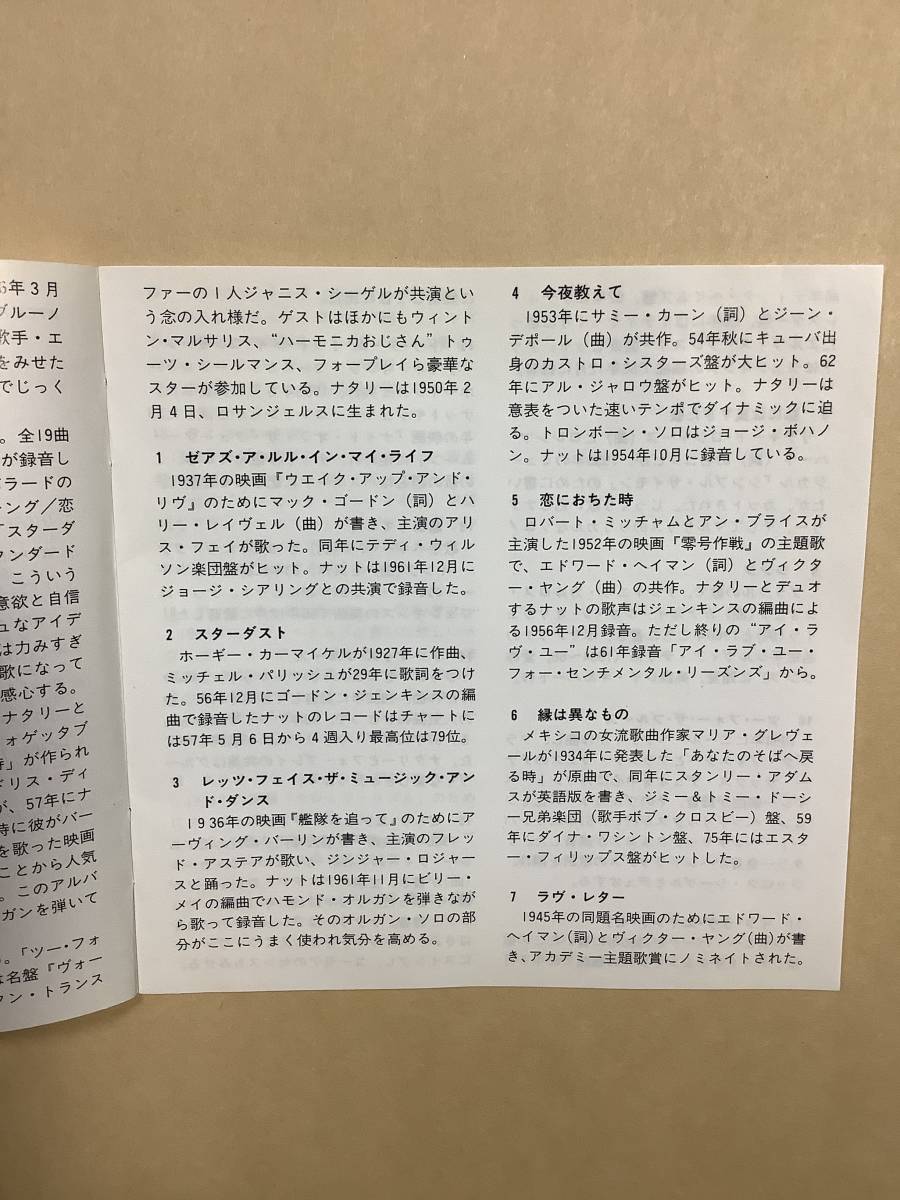 6年3月
ブルーノ
歌手・エ
をみせた
でじっく
。全19曲
が録音し
バラードの
キング／恋
「スターダ
タンダード
。こういう
意欲と自信
ュなアイデ
は力みすぎ
歌になって
感心する。
ナタリーと
フォゲッタブ
時」が作られ
ドリス・ディ
が、57年にナ
時に彼がバー
を歌った映画
ことから人気
。このアルバ
ルガンを弾いて
。「ツー・フォ
な名盤『ヴォー
ァン・トランス
ファーの1人ジャニス・シーゲルが共演とい
う念の入れ様だ。ゲストはほかにもウィント
ン・マルサリス、“ハーモニカおじさん”トゥ
ーツ・シールマンス、フォープレイら豪華な
スターが参加している。ナタリーは1950年2
月4日、ロサンジェルスに生まれた。
1 ゼアズ・ア・ルル・イン・マイ・ライフ
1937年の映画『ウエイク・アップ・アンド・
リヴ』のためにマック・ゴードン（詞）とハ
リー・レイヴェル（曲）が書き、主演のアリ
ス・フェイが歌った。同年にテディ・ウィル
ソン楽団盤がヒット。ナットは1961年12月に
ジョージ・シアリングとの共演で録音した。
2 スターダスト
ホーギー・カーマイケルが1927年に作曲、
ミッチェル・パリッシュが29年に歌詞をつけ
た。56年12月にゴードン・ジェンキンスの編
曲で録音したナットのレコードはチャートに
は57年5月6日から4週入り最高位は79位。
3 レッツ・フェイス・ザ・ミュージック・アン
ド・ダンス
1936年の映画『艦隊を追って』のためにア
ーヴィング・バーリンが書き、主演のフレッ
ド・アステアが歌い、ジンジャー・ロジャー
スと踊った。ナットは1961年11月にビリー・
メイの編曲でハモンド・オルガンを弾きなが
ら歌って録音した。そのオルガン・ソロの部
分がここにうまく使われ気分を高める。
4 今夜教えて
1953年にサミー・カーン（詞）とジーン・
デポール（曲）が共作。54年秋にキューバ出
身のカストロ・シスターズ盤が大ヒット。62
年にアル・ジャロウ盤がヒット。ナタリーは
意表をついた速いテンポでダイナミックに迫
る。トロンボーン・ソロはジョージ・ボハノ
ン。ナットは1954年10月に録音している。
5 恋におちた時
ロバート・ミッチャムとアン・ブライスが
主演した1952年の映画『零号作戦』の主題歌
で、エドワード・ヘイマン（詞）とヴィクタ
ー・ヤング（曲）の共作。ナタリーとデュオ
するナットの歌声はジェンキンスの編曲によ
る1956年12月録音。ただし終りの“アイ・ラ
ヴ・ユー”は61年録音「アイ・ラブ・ユー・
フォー・センチメンタル・リーズンズ」から。
6 縁は異なもの
メキシコの女流歌曲作家マリア・グレヴェ
ールが1934年に発表した「あなたのそばへ戻
る時」が原曲で、同年にスタンリー・アダム
スが英語版を書き、ジミー＆トミー・ドーシ
ー兄弟楽団（歌手ボブ・クロスビー）盤、59
年にダイナ・ワシントン盤、75年にはエスタ
ー・フィリップス盤がヒットした。
7 ラヴ・レター
1945年の同題名映画のためにエドワード・
ヘイマン（詞）とヴィクター・ヤング（曲）が書
き、アカデミー主題歌賞にノミネイトされた。